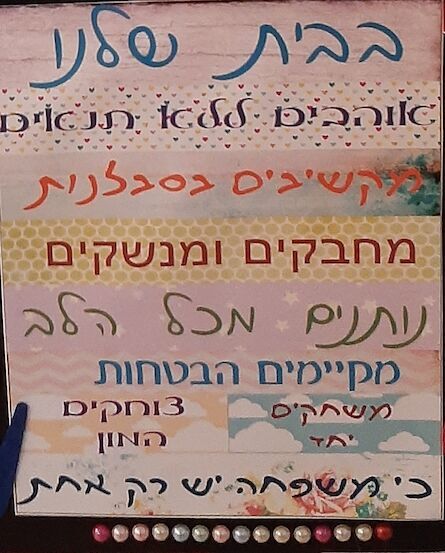 בבית שלנו
אוהבים ללא תנאים
מקשיבים בסבלנות
מחבקים ומנשקים
נותנים מכל הלב
מקיימים הבטחות
משחקים
יחד
צוחקים
המון
כי משפחה יש רק אחת